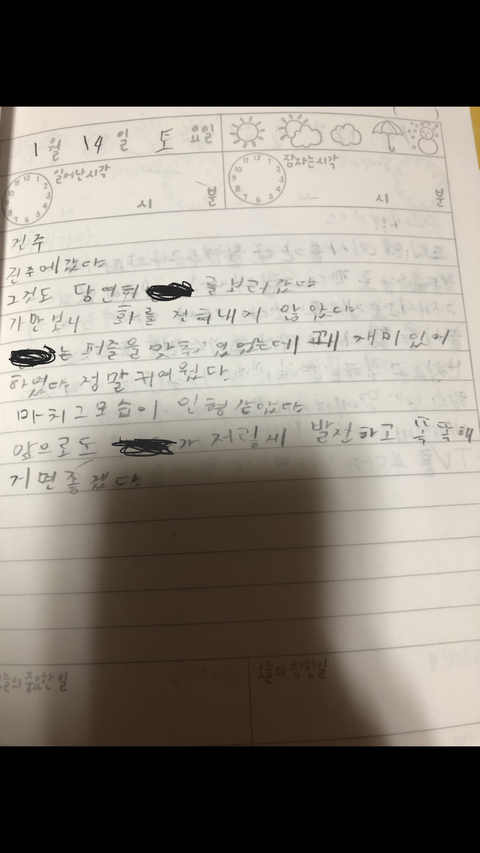 1월 14일 토요일
일어난시각 시 분 잠자는시각 시 분
진주
진주에갔다
그것도 당연히 를보러갔다
가만보니 화를 전혀내지 않았다
는 퍼즐을 맞추기있었는데 꽤 재미있어
하였다 정말귀여웠다
마치그모습이 인형같았다
앞으로도 가 저렇게 발전하고 똑똑해
지면좋겠다
오늘의 중요한일 오늘의 착한일